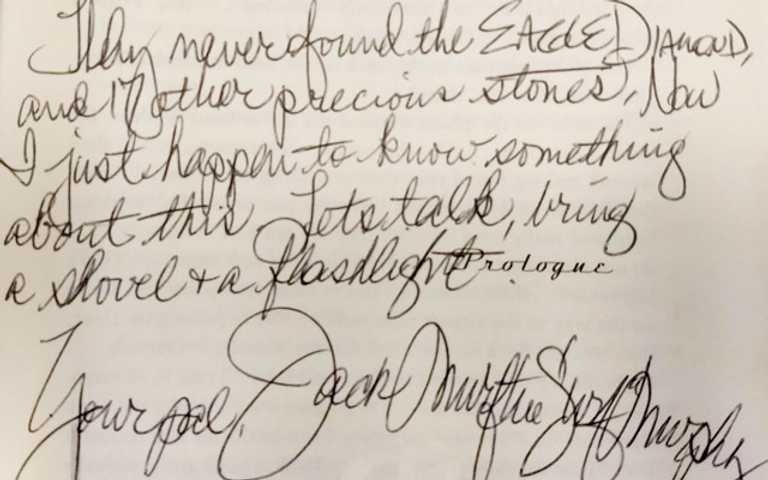 They never found the EAGLE DIAMOND,
and 17 other precious stones, Now
I just happen to know something
about this. Lets talk, bring
a shovel + a flashlight.
Prologue
Your pal, Jack Murf the Surf Murphy